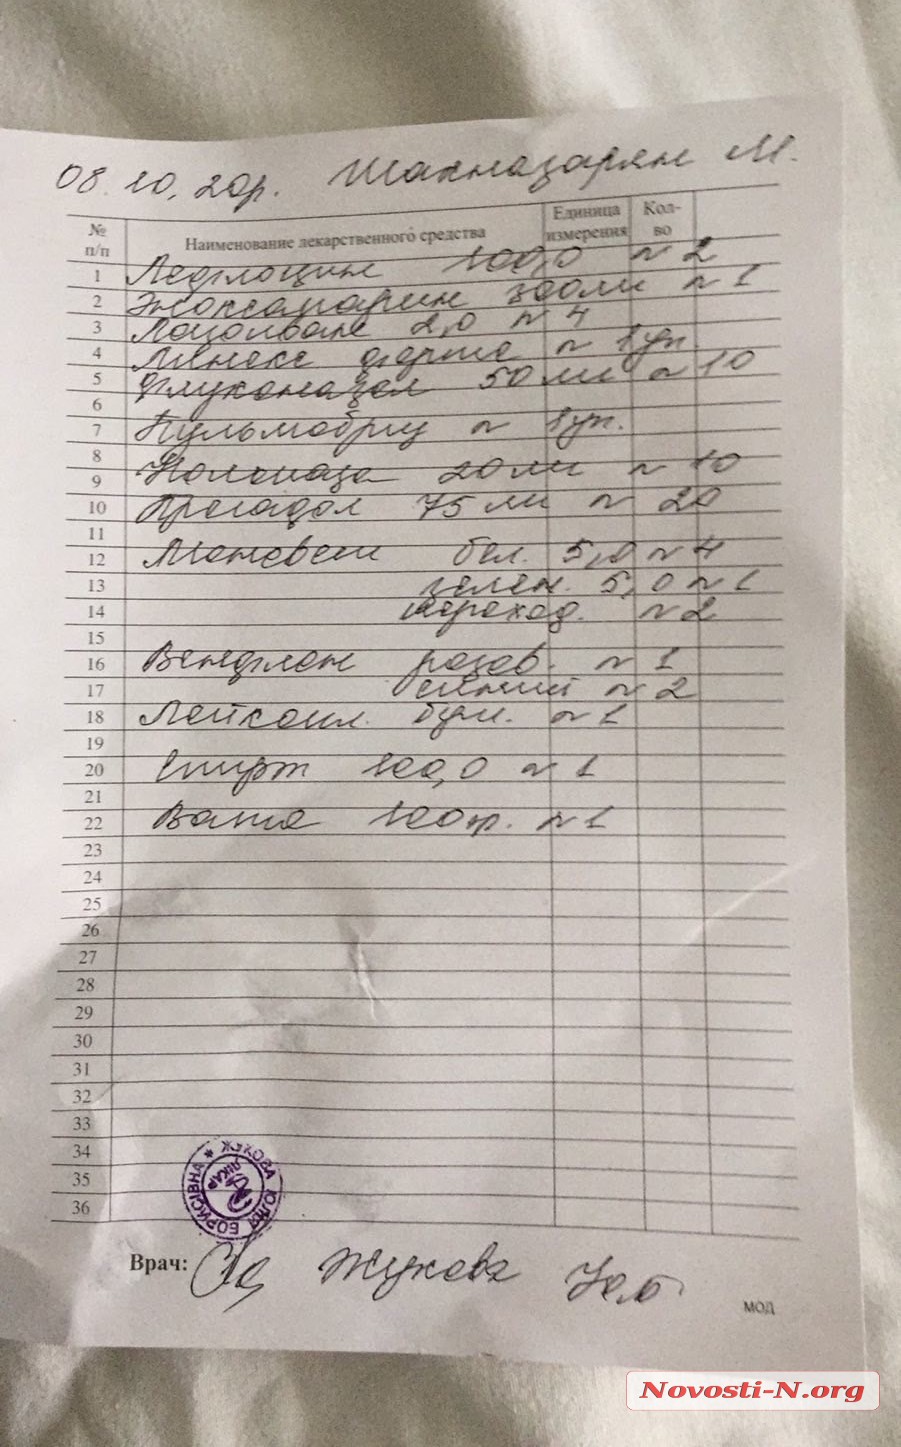 08.10.20р. Шахназарян М.
№ п/п Наименование лекарственного средства Единица измерения Кол-во
1 Лефлоцин 100,0 N 2
2 Эноксапарин N 1
3 Лазолван 2,0 N 4
4 Линекс форте N 1уп.
5 Флуконазол 50 мл N 10
6
7 Пульмобриз N 1уп.
8
9 20 мл N 10
10 75 мл N 20
11
12 бел. 5,0 N 4
13 зелен. 5,0 N 1
14 переход. N 2
15
16 Венфлон розов. N 1
17 синий N 2
18 Лейкопл. бум. N 1
19
20 Спирт 100,0 N 1
21
22 Вата 100гр. N 1
23
24
25
26
27
28
29
30
31
32
33
34
35
36
ЖУКОВА ЮЛІЯ БОРИСІВНА * ЛІКАР
Врач: Жукова Ю.Б.
МОД
Novosti-N.org